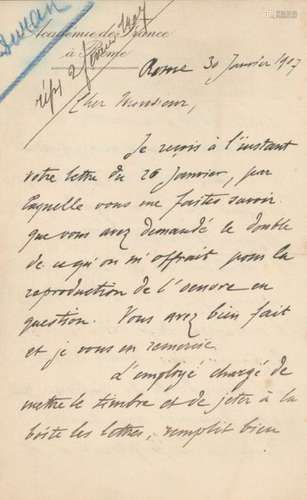 Duran
Académie de France
à Rome
rép. 2 février 1907
Rome 30 Janvier 1907
Cher Monsieur,
Je reçois à l'instant
votre lettre du 26 Janvier, par
laquelle vous me faites savoir
que vous avez demandé le double
de ce qu'on m'offrait pour la
reproduction de l'oeuvre en
question. Vous avez bien fait
et je vous en remercie.
L'employé chargé de
mettre le timbre et de jeter à la
boîte les lettres, remplit bien